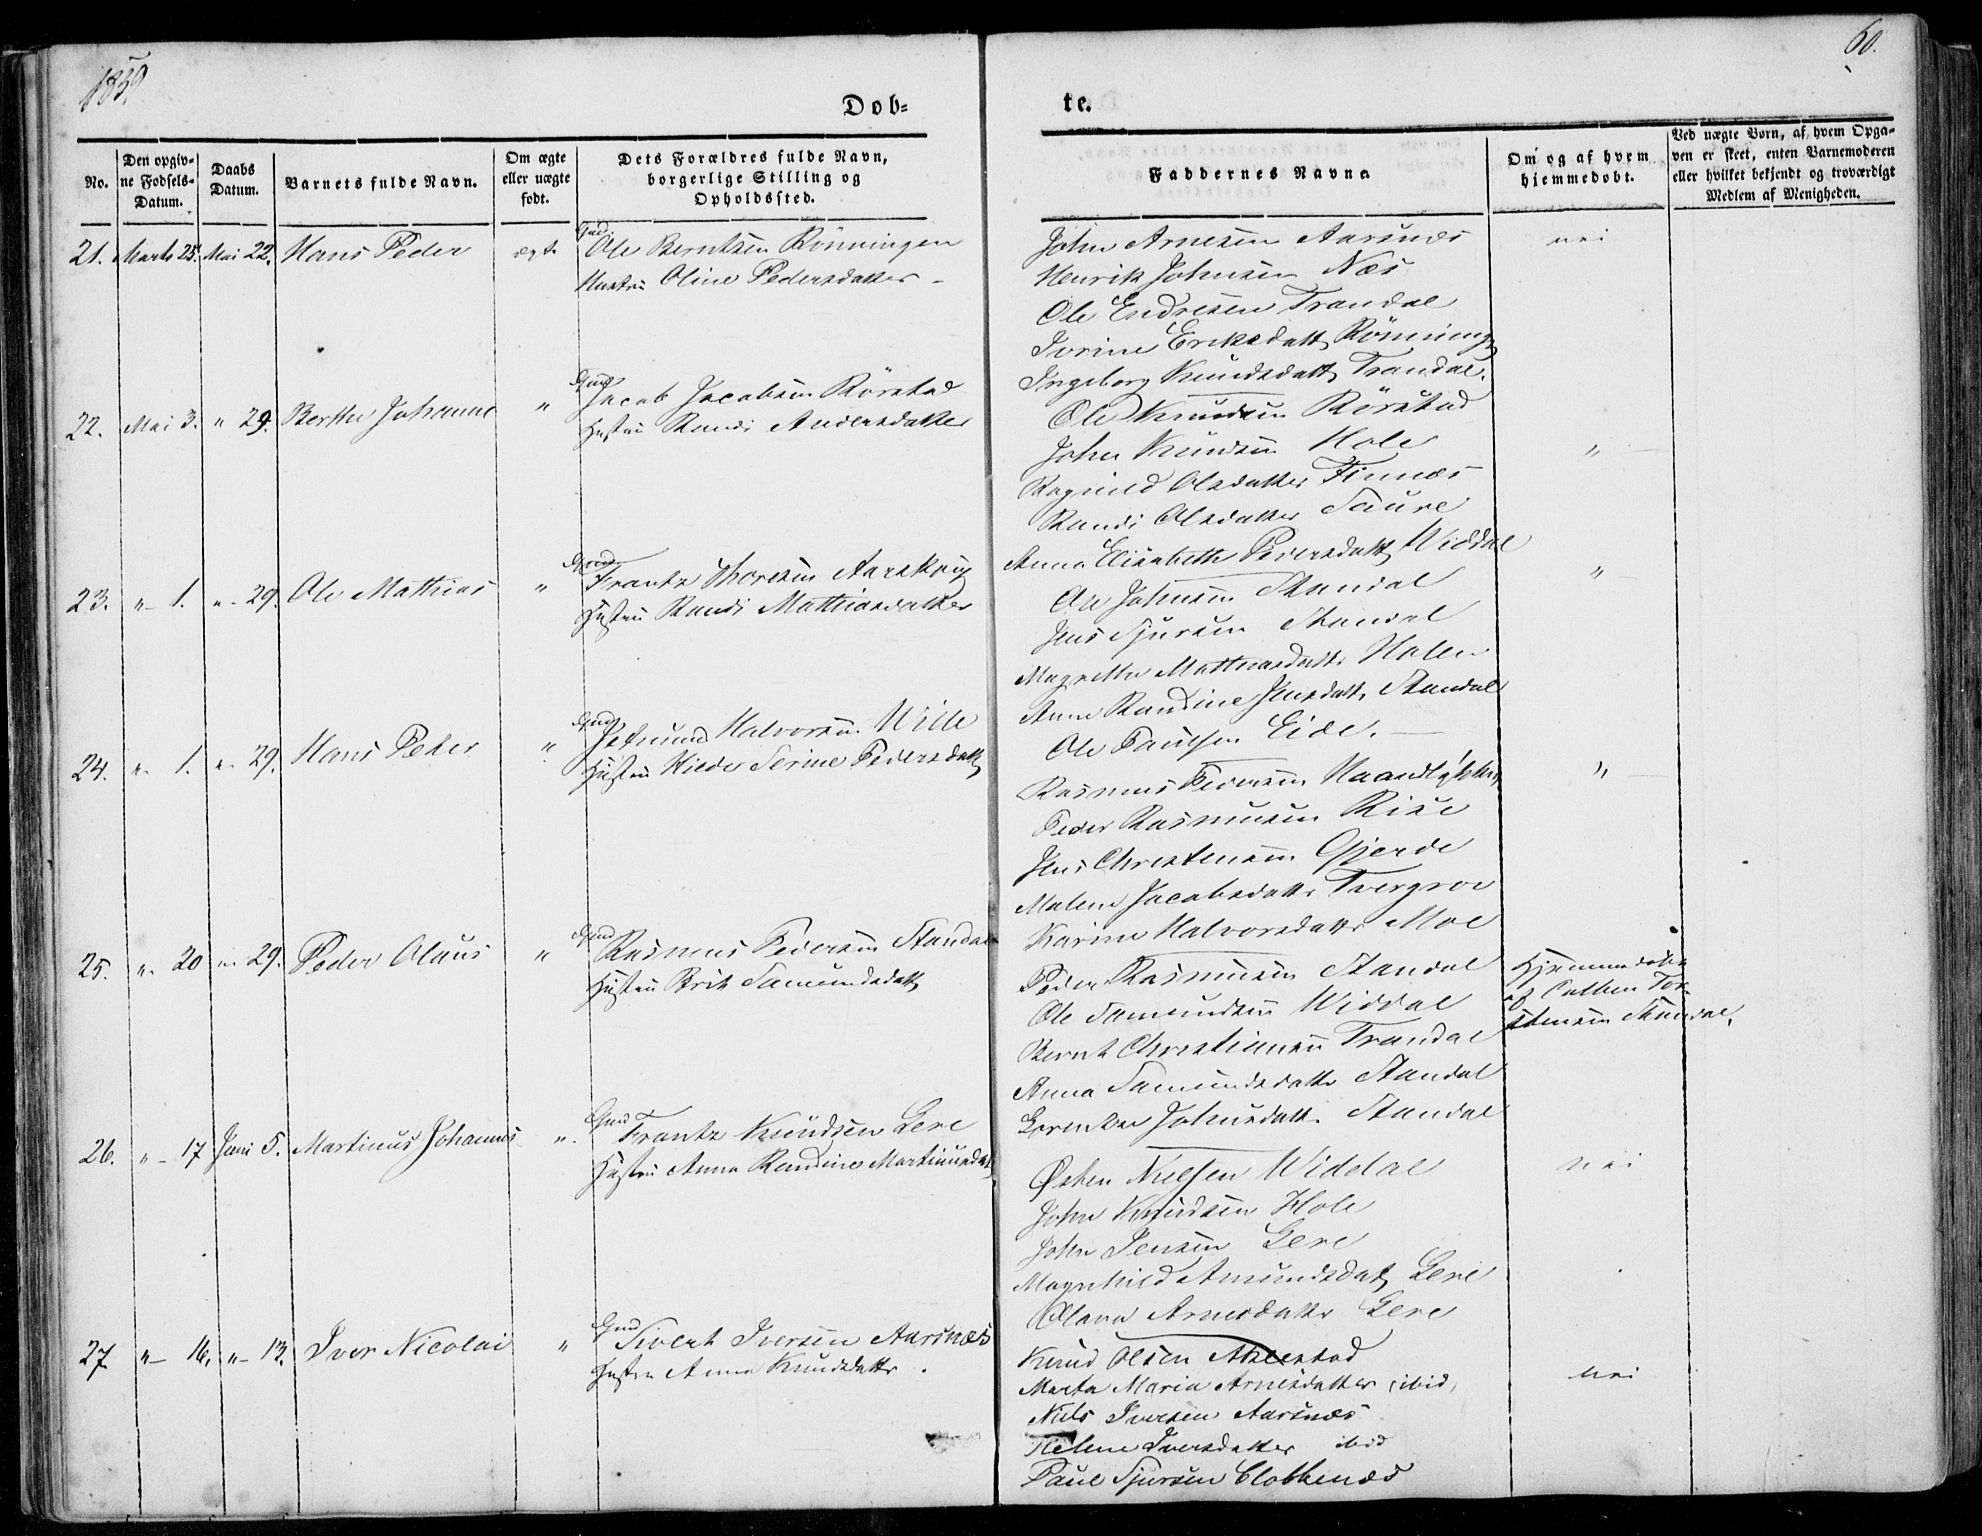 1859
60.
Dob-
te.
No.
Den opgiv-
ne Fødsels-
Datum.
Daabs
Datum.
Barnets fulde Navn.
Om ægte
eller uægte
født.
Dets Forældres fulde Navn,
borgerlige Stilling og
Opholdssted.
Faddernes Navne
Om og af hvem
hjemmedøbt.
Ved uægte Børn, af hvem Opga-
ven er skeet, enten Barnemoderen
eller hvilket bekjendt og troværdigt
Medlem af Menigheden.
21. Marts 25. Mai 22. Hans Peder ægte Gmd. Ole Berntsen Rönningen
Hustru Oline Pedersdatter
John Arnesen Aarsnæs nei
Henrik Johnsen Næs
Ole Endresen Trandal
Ivrine Eriksdatt Rönning
Ingeborg Knudsdatt Trandal.
22. Mai 3. " 29. Berthe Johanne " Gmd Jacob Jacobsen Rörstad
Hustru Randi Andersdatter
Ole Knudsen Rörstad
John Knudsen Hole "
Ragnild Olsdatter Finnæs
Randi Olsdatter Saure
Anna Elisabeth Pedersdatt Widdal
23. " 1. " 29. Ole Mathias " Gmd Frantz Thoresen Aarskog
Hustru Randi Mathiasdatter
Ole Johnsen Standal "
Jens Sjursen Standal
Magrethe Mathiasdatt Holen
Anne Randine Jensdatt Standal
Ole Paulsen Eide.
24. " 1. " 29. Hans Peder " Gmd Halvorsen Wiie
Hustru Serine Pedersdatt
Rasmus Pedersen "
Peder Rasmusen Rise
Jens Christensen Gjerde
Malene Jacobsdatt Tvergroe
Karine Halvorsdatt Moe
25. " 20 " 29. Peder Olaus " Gmd Rasmus Pedersen Standal
Hustru Brit Samundsdatt
Peder Rasmusen Standal Hjemmedøbt
Ole Samundsen Widdal af
Bernt Christiansen Trandal Standal.
Anna Samundsdatt Standal
Johnsdatt. Standal
26. " 17 Juni 5. Martinus Johannes " Gmd Frantz Knudsen Lere
Hustru Anna Randine Martinusdat
Østen Nielsen Widdal nei
John Knudsen Hole
John Jensen Lere
Magnhild Amundsdat Lere
Olava Arnesdatt Lere
27 " 16. " 12. Iver Nicolai " Gmd Sivert Iversen Aarsnæs
Hustru Anna Knudsdatt.
Knud Olsen
Marta Maria Arnesdatter ibid. nei
Niels Iversen Aarsnæs
Helene Iversdatter ibid
Paul Sjursen Clokkenæs